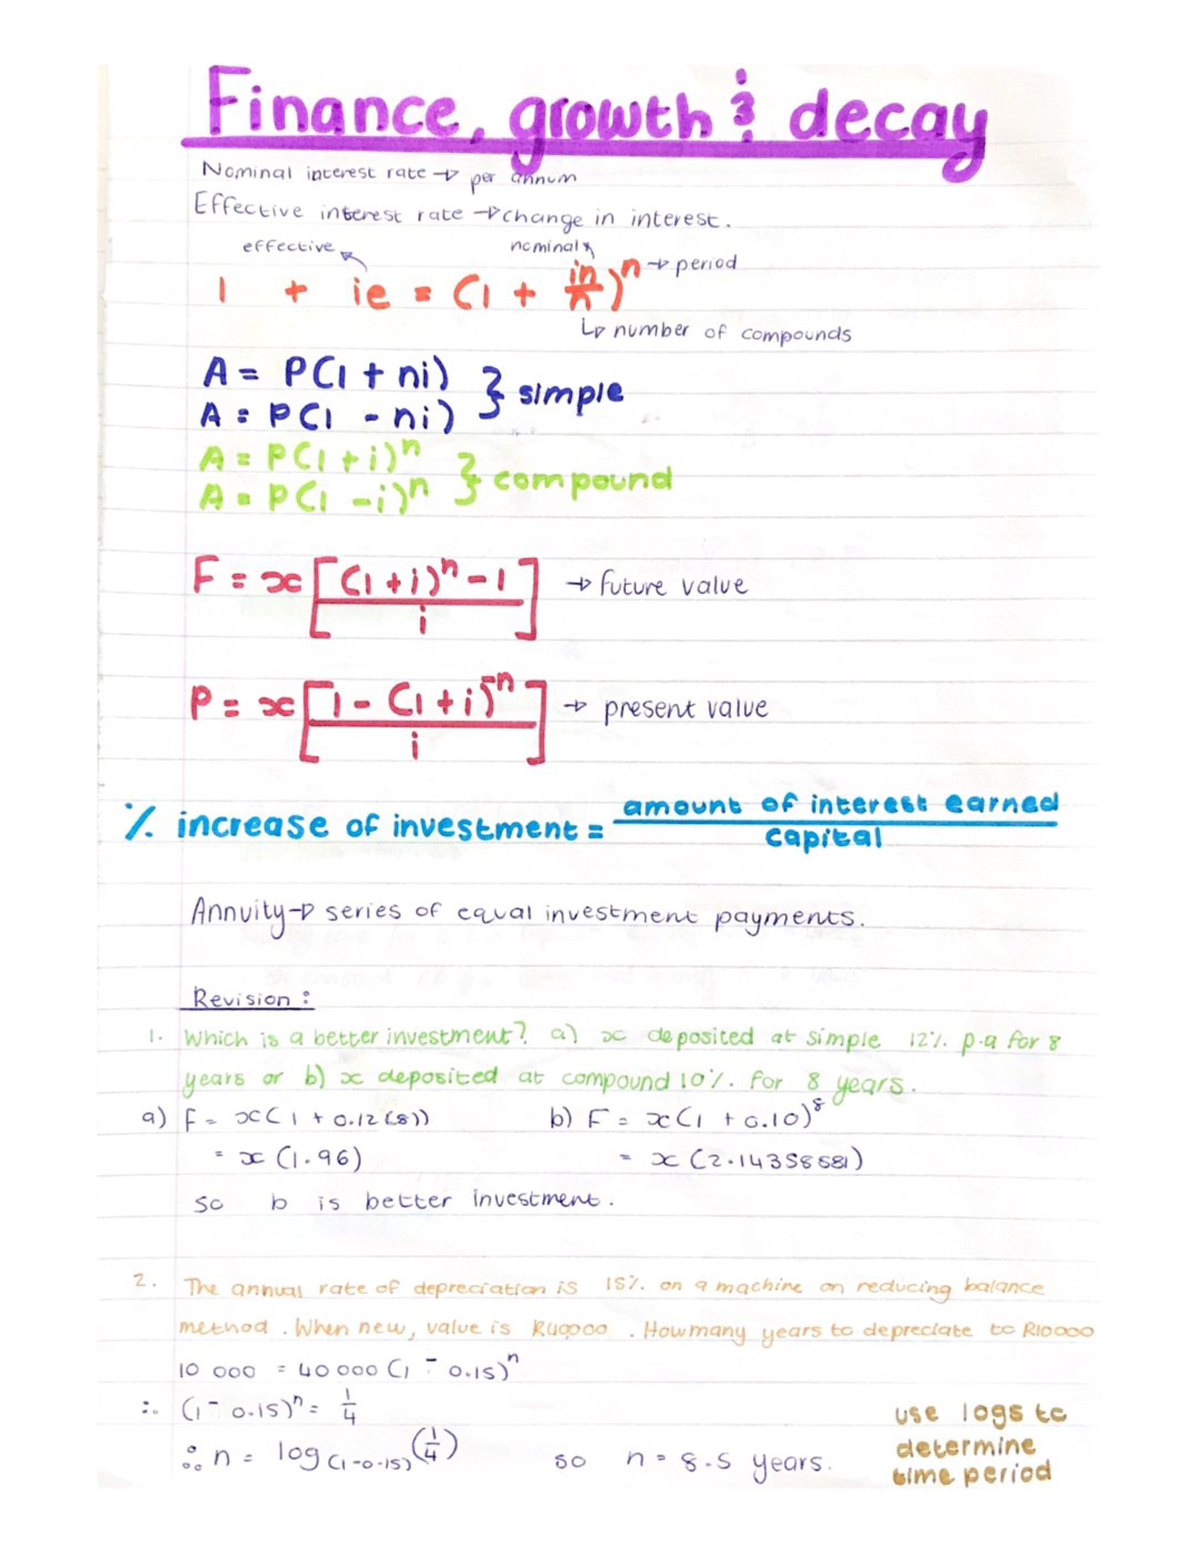 Finance, growth & decay
Nominal interest rate → per annum
Effective interest rate → change in interest.
effective nominal
1 + ie = (1 + in/n)^n → period
↳ number of compounds
A = P(1 + ni)
A = P(1 - ni) } simple
A = P(1 + i)^n
A = P(1 - i)^n } compound
F = x[((1+i)^n - 1)/i] → future value
P = x[(1 - (1+i)^-n)/i] → present value
% increase of investment = amount of interest earned / capital
Annuity → series of equal investment payments.
Revision :
1. Which is a better investment? a) x deposited at simple 12% p.a for 8
years or b) x deposited at compound 10% for 8 years.
a) F = x(1 + 0.12(8)) b) F = x(1 + 0.10)^8
= x(1.96) = x(2.14358881)
so b is better investment.
2. The annual rate of depreciation is 15% on a machine on reducing balance
method. When new, value is R40000. How many years to depreciate to R10000
10 000 = 40 000 (1 - 0.15)^n
∴ (1 - 0.15)^n = 1/4
∴ n = log(1-0.15) (1/4) so n = 8.5 years.
use logs to
determine
time period